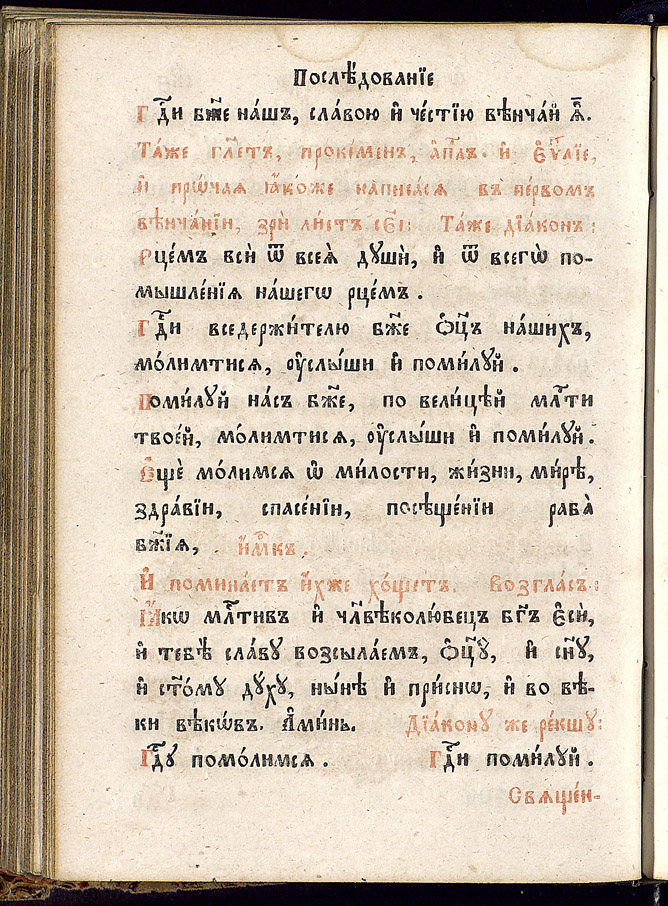 Послѣ́дованїе
Гдⷭ҇и бж҃е на́шъ, сла́вою и҆ че́стїю вѣнча́й ѧ҆̀.
Та́же гл҃етъ, проки́менъ, а҆пⷭ҇лъ. и҆ є҆ѵⷢ҇лїе,
и҆ прѡ́чаѧ ꙗ҆́коже написа́сѧ въ пе́рвомъ
вѣнча́нїи, зрѝ ли́стъ сє҃і: Та́же дїа́конъ:
Рце́мъ всѝ ѿ всеѧ̀ дꙋшѝ, и҆ ѿ всегѡ̀ по-
мышле́нїѧ на́шегѡ рце́мъ.
Гдⷭ҇и вседержи́телю бж҃е ѻ҆ц҃ъ на́шихъ,
мо́лимтисѧ, оу҆слы́ши и҆ поми́лꙋй.
Поми́лꙋй на́съ бж҃е, по вели́цѣй млⷭ҇ти
твое́й, мо́лимтисѧ, оу҆слы́ши и҆ поми́лꙋй.
Є҆щѐ мо́лимсѧ ѡ҆ ми́лости, жи́зни, ми́рѣ,
здра́вїи, спасе́нїи, посѣще́нїи раба̀
бж҃їѧ, и҆́мⷬ҇къ.
И҆ помина́етъ и҆́хже хо́щетъ. Возгла́съ:
Ꙗ҆́кѡ млⷭ҇тивъ и҆ чл҃вѣколю́бецъ бг҃ъ є҆сѝ,
и҆ тебѣ̀ сла́вꙋ возсыла́емъ, ѻ҆ц҃ꙋ̀, и҆ сн҃ꙋ,
и҆ ст҃о́мꙋ дꙋ́хꙋ, ны́нѣ и҆ при́снѡ, и҆ во вѣ́-
ки вѣкѡ́въ. А҆ми́нь. Дїа́конꙋ же ре́кшꙋ:
Гдⷭ҇ꙋ помо́лимсѧ. Гдⷭ҇и поми́лꙋй.
Свѧще́н-